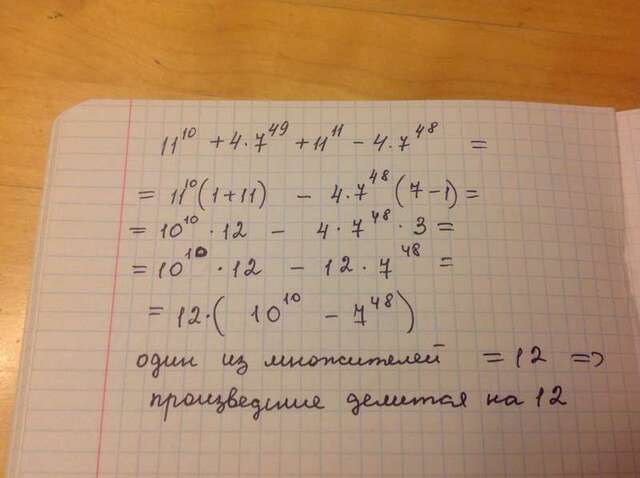 11^10 + 4·7^49 + 11^11 − 4·7^48 =
= 11^10 (1+11) − 4·7^48 (7−1) =
= 10^10 · 12 − 4·7^48 · 3 =
= 10^10 · 12 − 12·7^48 =
= 12·( 10^10 − 7^48 )
один из множителей = 12 =>
произведение делится на 12